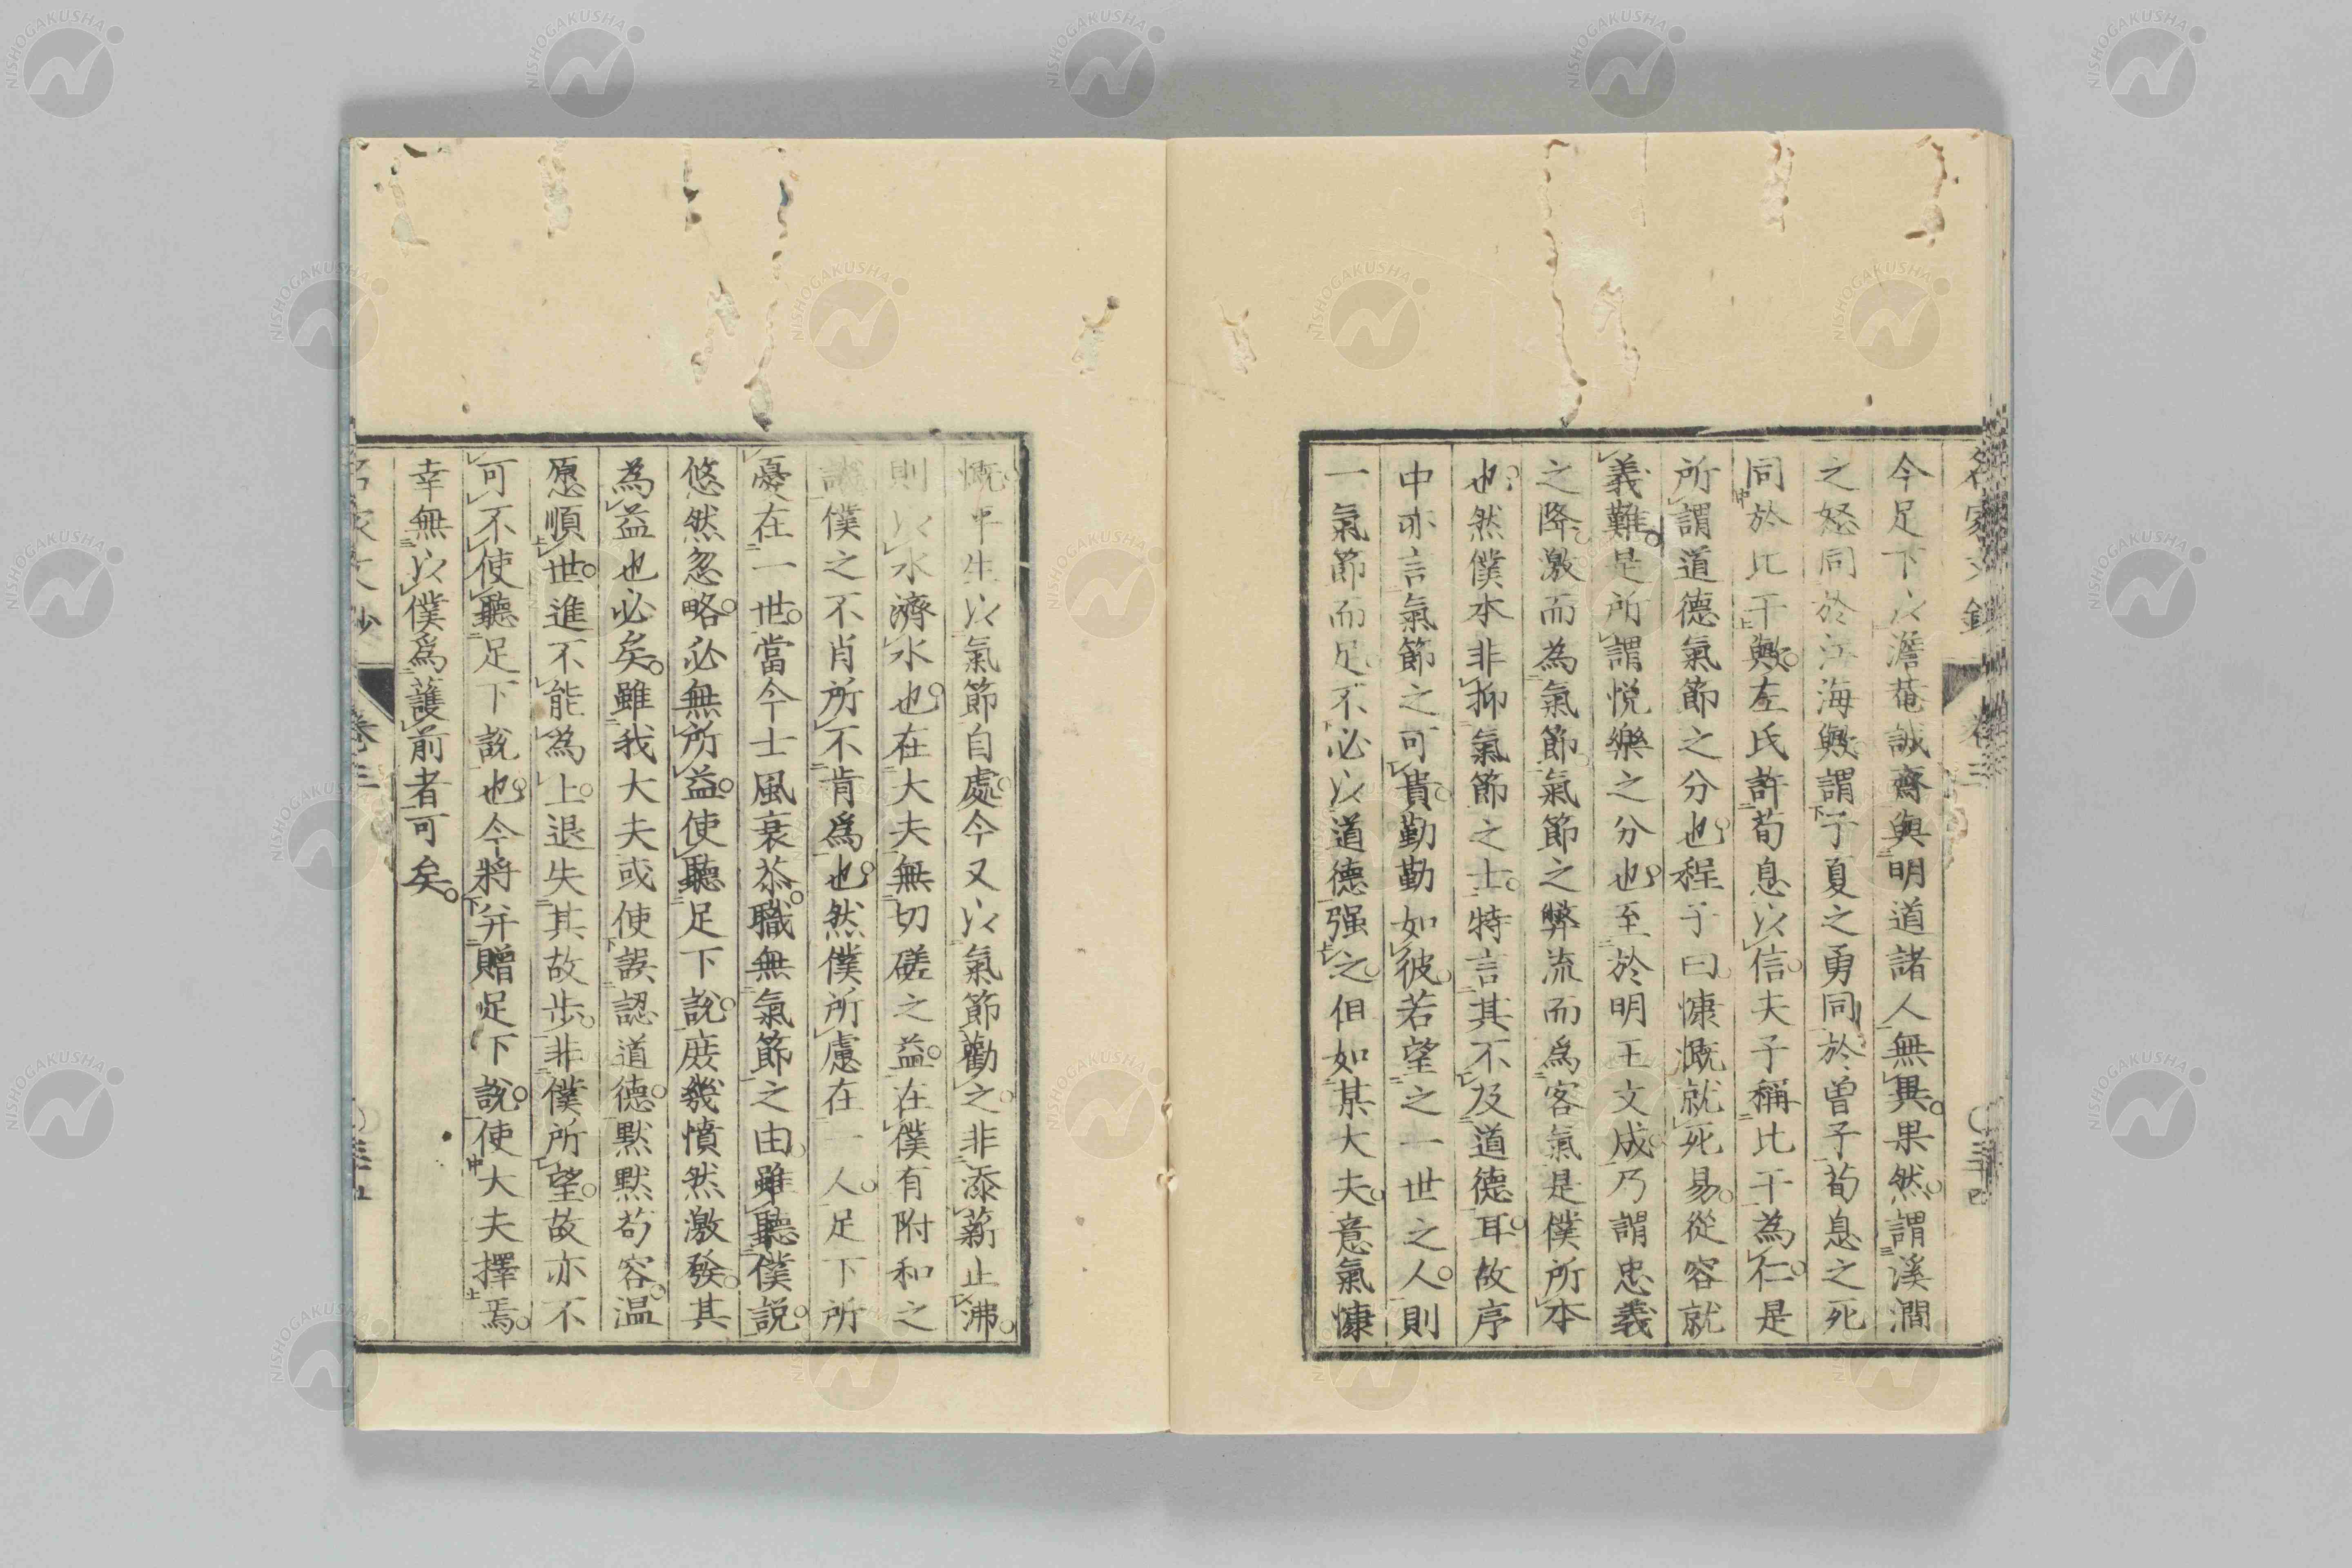 今足下以澹菴誠齋與明道諸人無異果然謂溪澗
之怒同於海海歟謂子夏之勇同於曾子荀息之死
同於比干歟左氏許荀息以信夫子稱比干為仁是
所謂道德氣節之分也程子曰慷慨就死易從容就
義難是所謂悦樂之分也至於明王文成乃謂忠義
之降激而為氣節氣節之弊流而爲客氣是僕所本
也然僕本非抑氣節之士特言其不及道德耳故序
中亦言氣節之可貴勤勤如彼若望之一世之人則
一氣節而足不必以道德强之但如某大夫意氣慷
慨平生以氣節自處今又以氣節勸之非添薪止沸
則以水濟水也在大夫無切磋之益在僕有附和之
僕之不肖所不肯爲也然僕所慮在一人足下所
憂在一世當今士風衰苶職無氣節之由雖聽僕説
悠然忽略必無所益使聽足下說庶幾憤然激發其
為益也必矣雖我大夫或使誤認道德默默苟容温
愿順世進不能為上退失其故步非僕所望故亦不
可不使聽足下說也今將并贈足下說使大夫擇焉
幸無以僕爲護前者可矣
卷三
NISHOGAKUSHA